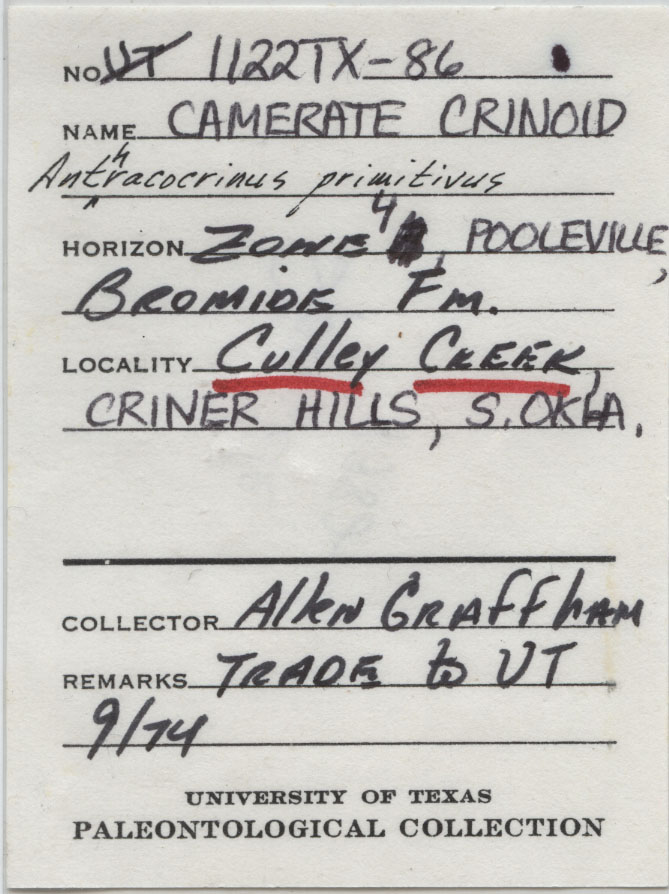 NO. UT 1122TX-86
NAME CAMERATE CRINOID
Anthracocrinus primitivus
HORIZON ZONE 4, POOLEVILLE,
BROMIDE Fm.
LOCALITY Culley CREEK,
CRINER HILLS, S. OKLA.
COLLECTOR Allen GRAFFHAM
REMARKS TRADE to UT
9/74
UNIVERSITY OF TEXAS
PALEONTOLOGICAL COLLECTION